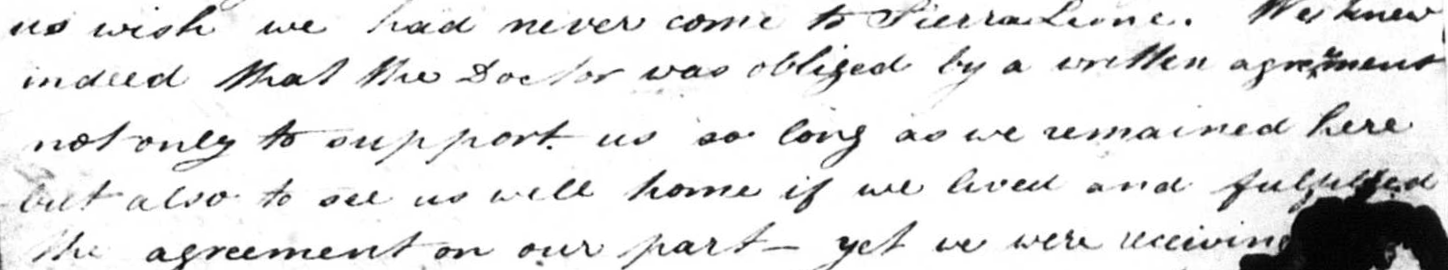 us wish we had never come to Sierra Leone. We knew
indeed that the Doctor was obliged by a written agreement
not only to support us so long as we remained here
but also to see us well home if we lived and fulfilled
the agreement on our part — yet we were receiving